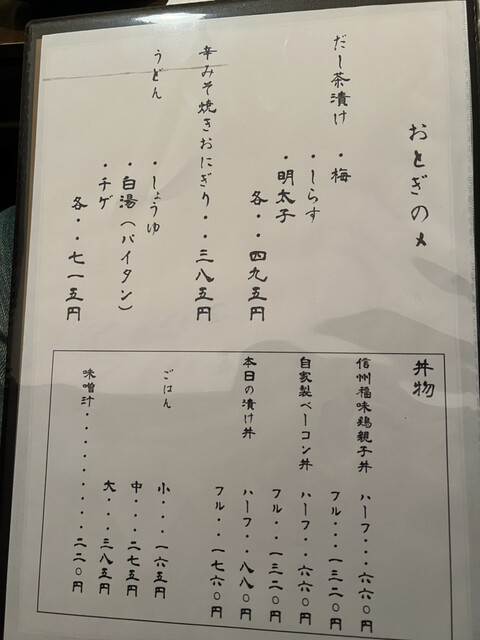 おとぎの〆
だし茶漬け・梅
・しらす
・明太子
各・・四九五円
辛みそ焼きおにぎり・・三八五円
うどん・しょうゆ
・白湯(パイタン)
・チゲ
各・・七一五円
丼物
信州福味鶏親子丼 ハーフ・・・六六〇円
フル・・・一三二〇円
自家製ベーコン丼 ハーフ・・六六〇円
フル・・・一三二〇円
本日の漬け丼 ハーフ・・八八〇円
フル・・一七六〇円
ごはん 小・・・一六五円
中・・・二七五円
大・・・三八五円
味噌汁・・・・・・・・・・二二〇円